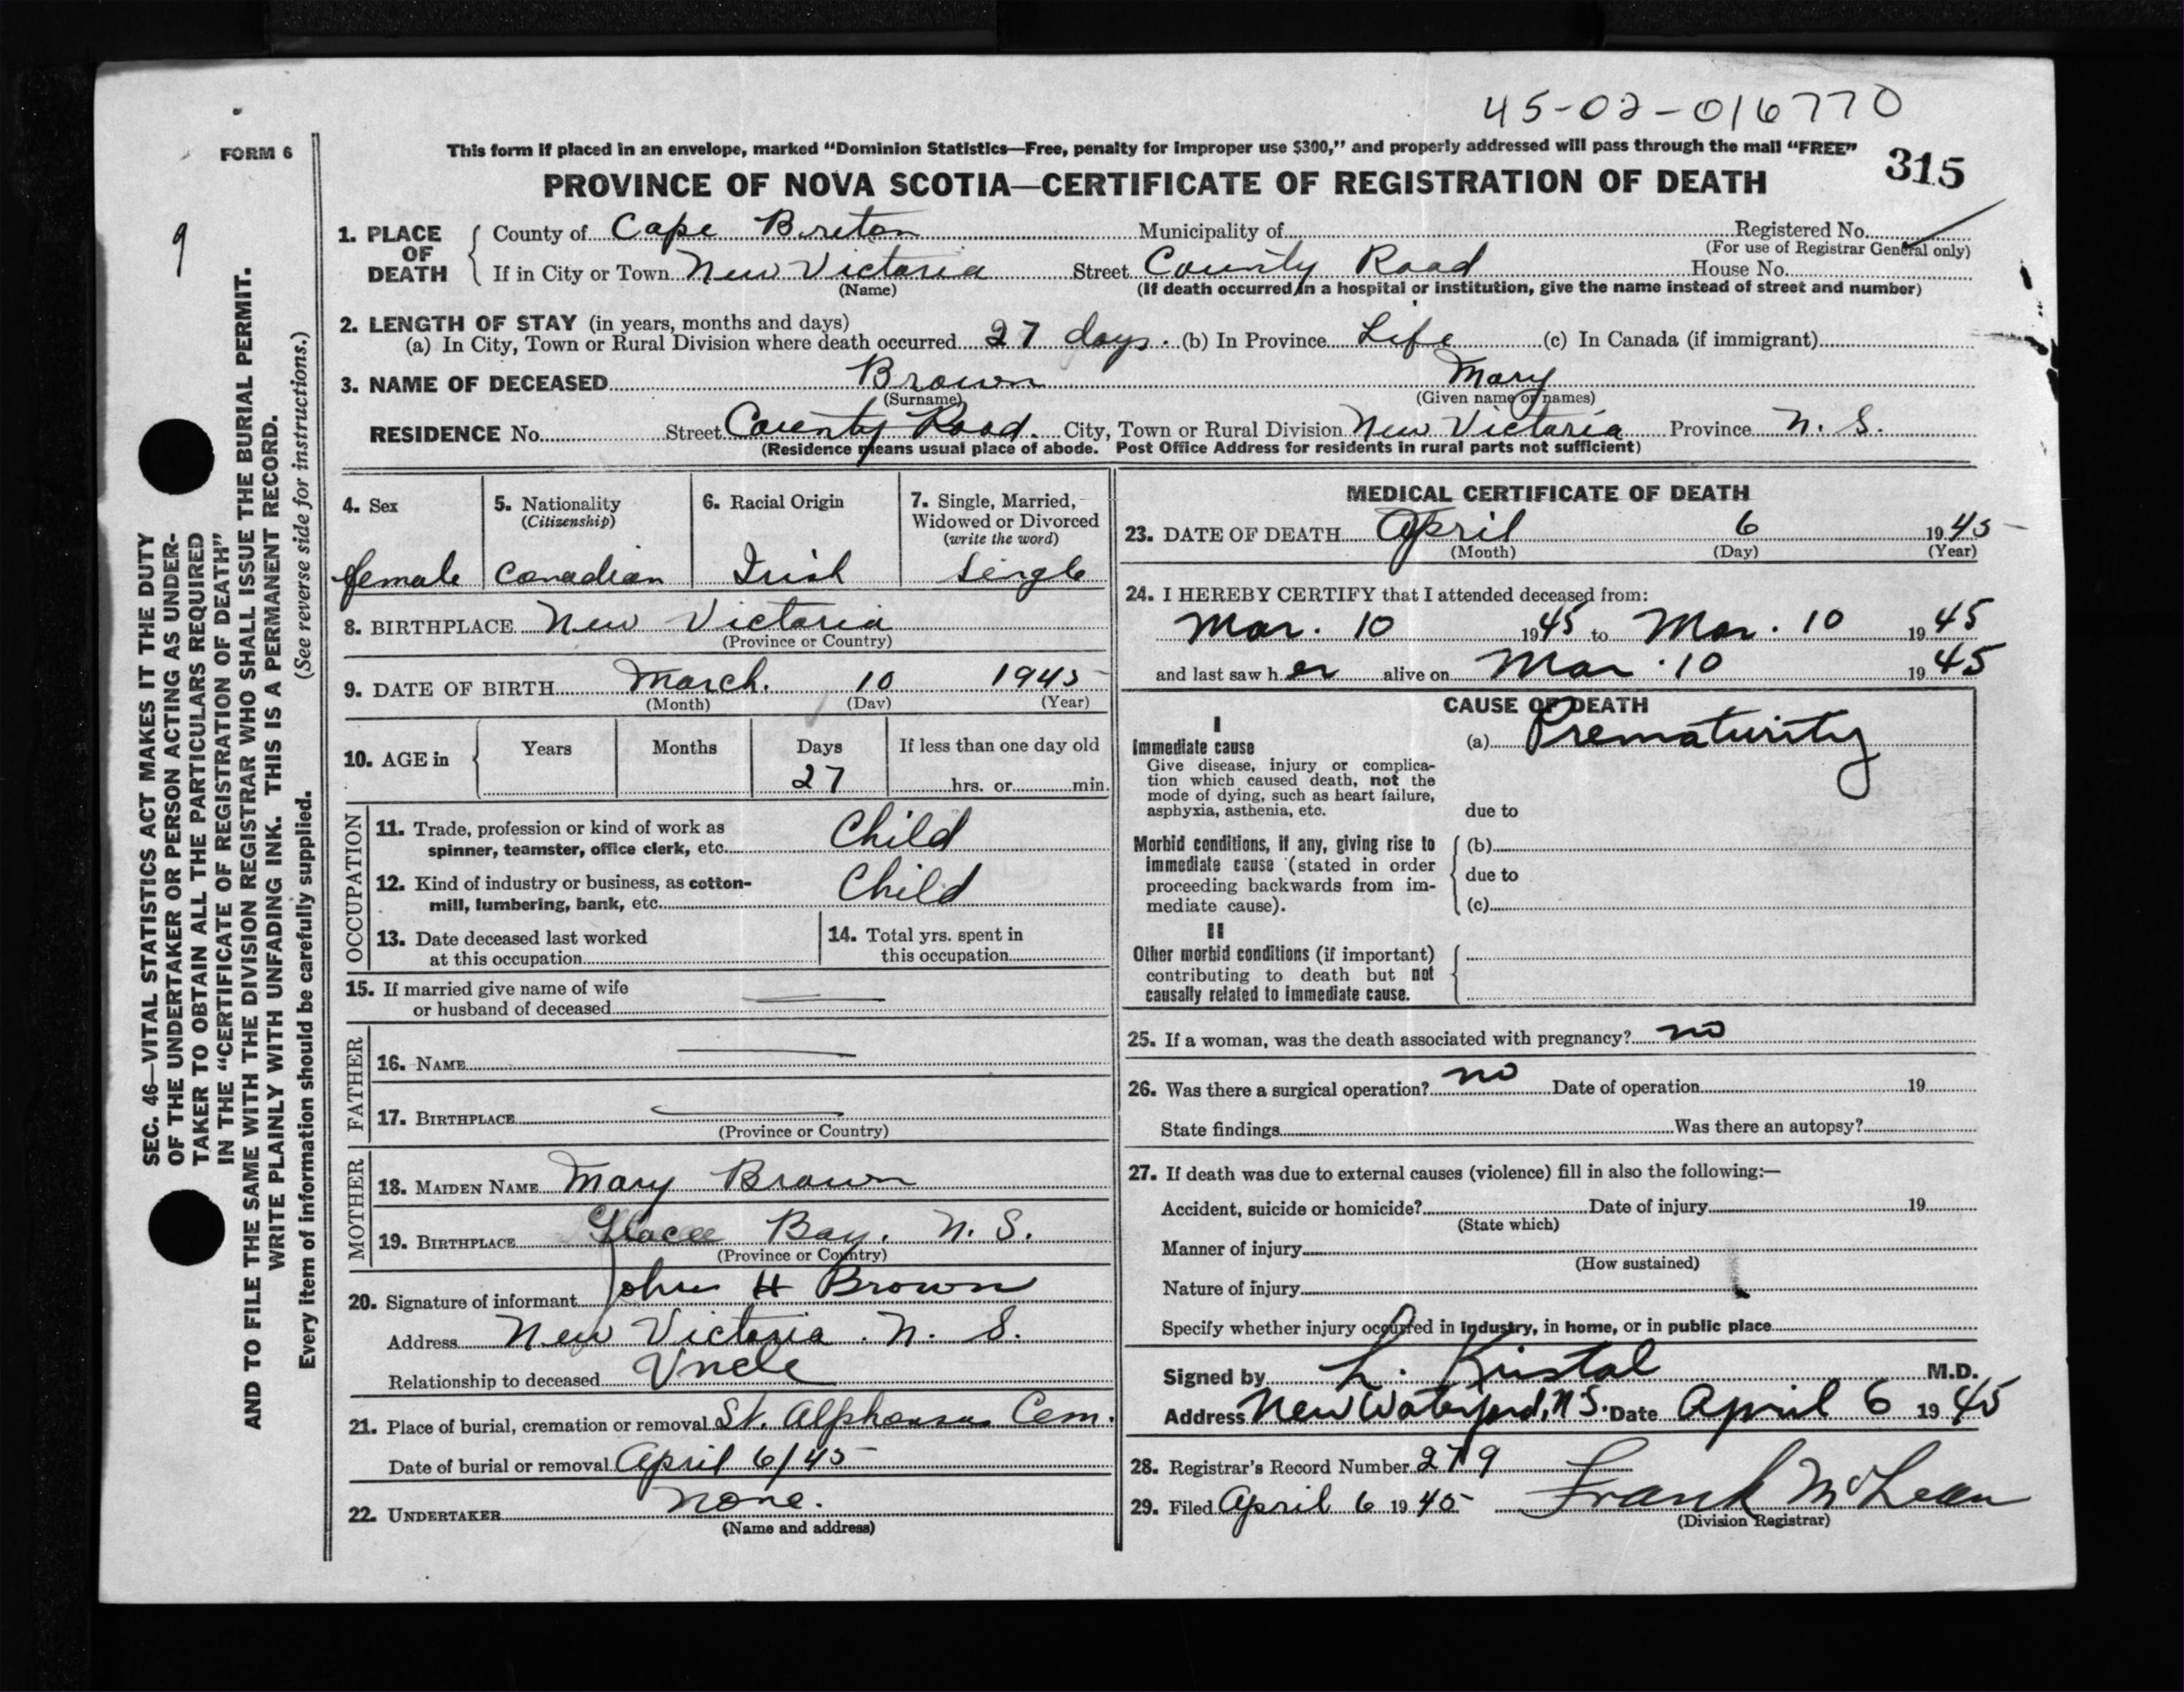 45-02-016770
FORM 6
This form if placed in an envelope, marked “Dominion Statistics—Free, penalty for improper use $300,” and properly addressed will pass through the mail “FREE”
315
PROVINCE OF NOVA SCOTIA—CERTIFICATE OF REGISTRATION OF DEATH
9
1. PLACE OF DEATH
County of Cape Breton Municipality of Registered No.
(For use of Registrar General only)
If in City or Town New Victoria Street County Road House No.
(Name) (If death occurred in a hospital or institution, give the name instead of street and number)
2. LENGTH OF STAY (in years, months and days)
(a) In City, Town or Rural Division where death occurred 27 days. (b) In Province Life (c) In Canada (if immigrant)
3. NAME OF DECEASED Brown Mary
(Surname) (Given name or names)
RESIDENCE No. Street County Road. City, Town or Rural Division New Victoria Province N. S.
(Residence means usual place of abode. Post Office Address for residents in rural parts not sufficient)
4. Sex
female
5. Nationality
(Citizenship)
Canadian
6. Racial Origin
Irish
7. Single, Married,
Widowed or Divorced
(write the word)
Single
8. BIRTHPLACE New Victoria
(Province or Country)
9. DATE OF BIRTH March. 10 1945
(Month) (Day) (Year)
10. AGE in Years Months Days If less than one day old
27 hrs. or min.
OCCUPATION
11. Trade, profession or kind of work as
spinner, teamster, office clerk, etc. Child
12. Kind of industry or business, as cotton-
mill, lumbering, bank, etc. Child
13. Date deceased last worked
at this occupation
14. Total yrs. spent in
this occupation
15. If married give name of wife
or husband of deceased
FATHER
16. NAME
17. BIRTHPLACE
(Province or Country)
MOTHER
18. MAIDEN NAME Mary Brown
19. BIRTHPLACE Glace Bay. N. S.
(Province or Country)
20. Signature of informant John H Brown
Address New Victoria. N. S.
Relationship to deceased Uncle
21. Place of burial, cremation or removal St. Alphonsus Cem.
Date of burial or removal April 6/45
22. UNDERTAKER None.
(Name and address)
MEDICAL CERTIFICATE OF DEATH
23. DATE OF DEATH April 6 1945
(Month) (Day) (Year)
24. I HEREBY CERTIFY that I attended deceased from:
Mar. 10 1945 to Mar. 10 1945
and last saw her alive on Mar. 10 1945
CAUSE OF DEATH
I
Immediate cause
Give disease, injury or complica-
tion which caused death, not the
mode of dying, such as heart failure,
asphyxia, asthenia, etc.
(a) Prematurity
due to
Morbid conditions, if any, giving rise to
immediate cause (stated in order
proceeding backwards from im-
mediate cause).
(b)
due to
(c)
II
Other morbid conditions (if important)
contributing to death but not
causally related to immediate cause.
25. If a woman, was the death associated with pregnancy? no
26. Was there a surgical operation? no Date of operation 19
State findings Was there an autopsy?
27. If death was due to external causes (violence) fill in also the following:—
Accident, suicide or homicide? Date of injury 19
(State which)
Manner of injury
(How sustained)
Nature of injury
Specify whether injury occurred in industry, in home, or in public place
Signed by L. Kristal M.D.
Address New Waterford, N.S. Date April 6 1945
28. Registrar's Record Number 279
29. Filed April 6 1945 Frank McLean
(Division Registrar)
SEC. 46—VITAL STATISTICS ACT MAKES IT THE DUTY
OF THE UNDERTAKER OR PERSON ACTING AS UNDER-
TAKER TO OBTAIN ALL THE PARTICULARS REQUIRED
IN THE “CERTIFICATE OF REGISTRATION OF DEATH”
AND TO FILE THE SAME WITH THE DIVISION REGISTRAR WHO SHALL ISSUE THE BURIAL PERMIT.
WRITE PLAINLY WITH UNFADING INK. THIS IS A PERMANENT RECORD.
Every item of information should be carefully supplied. (See reverse side for instructions.)